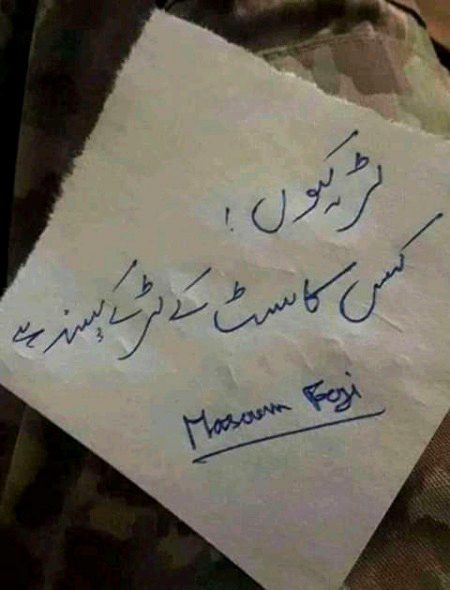 لڑکیوں!
کس کاسٹ کے لڑکے پسند ہے
Masoom Fogi